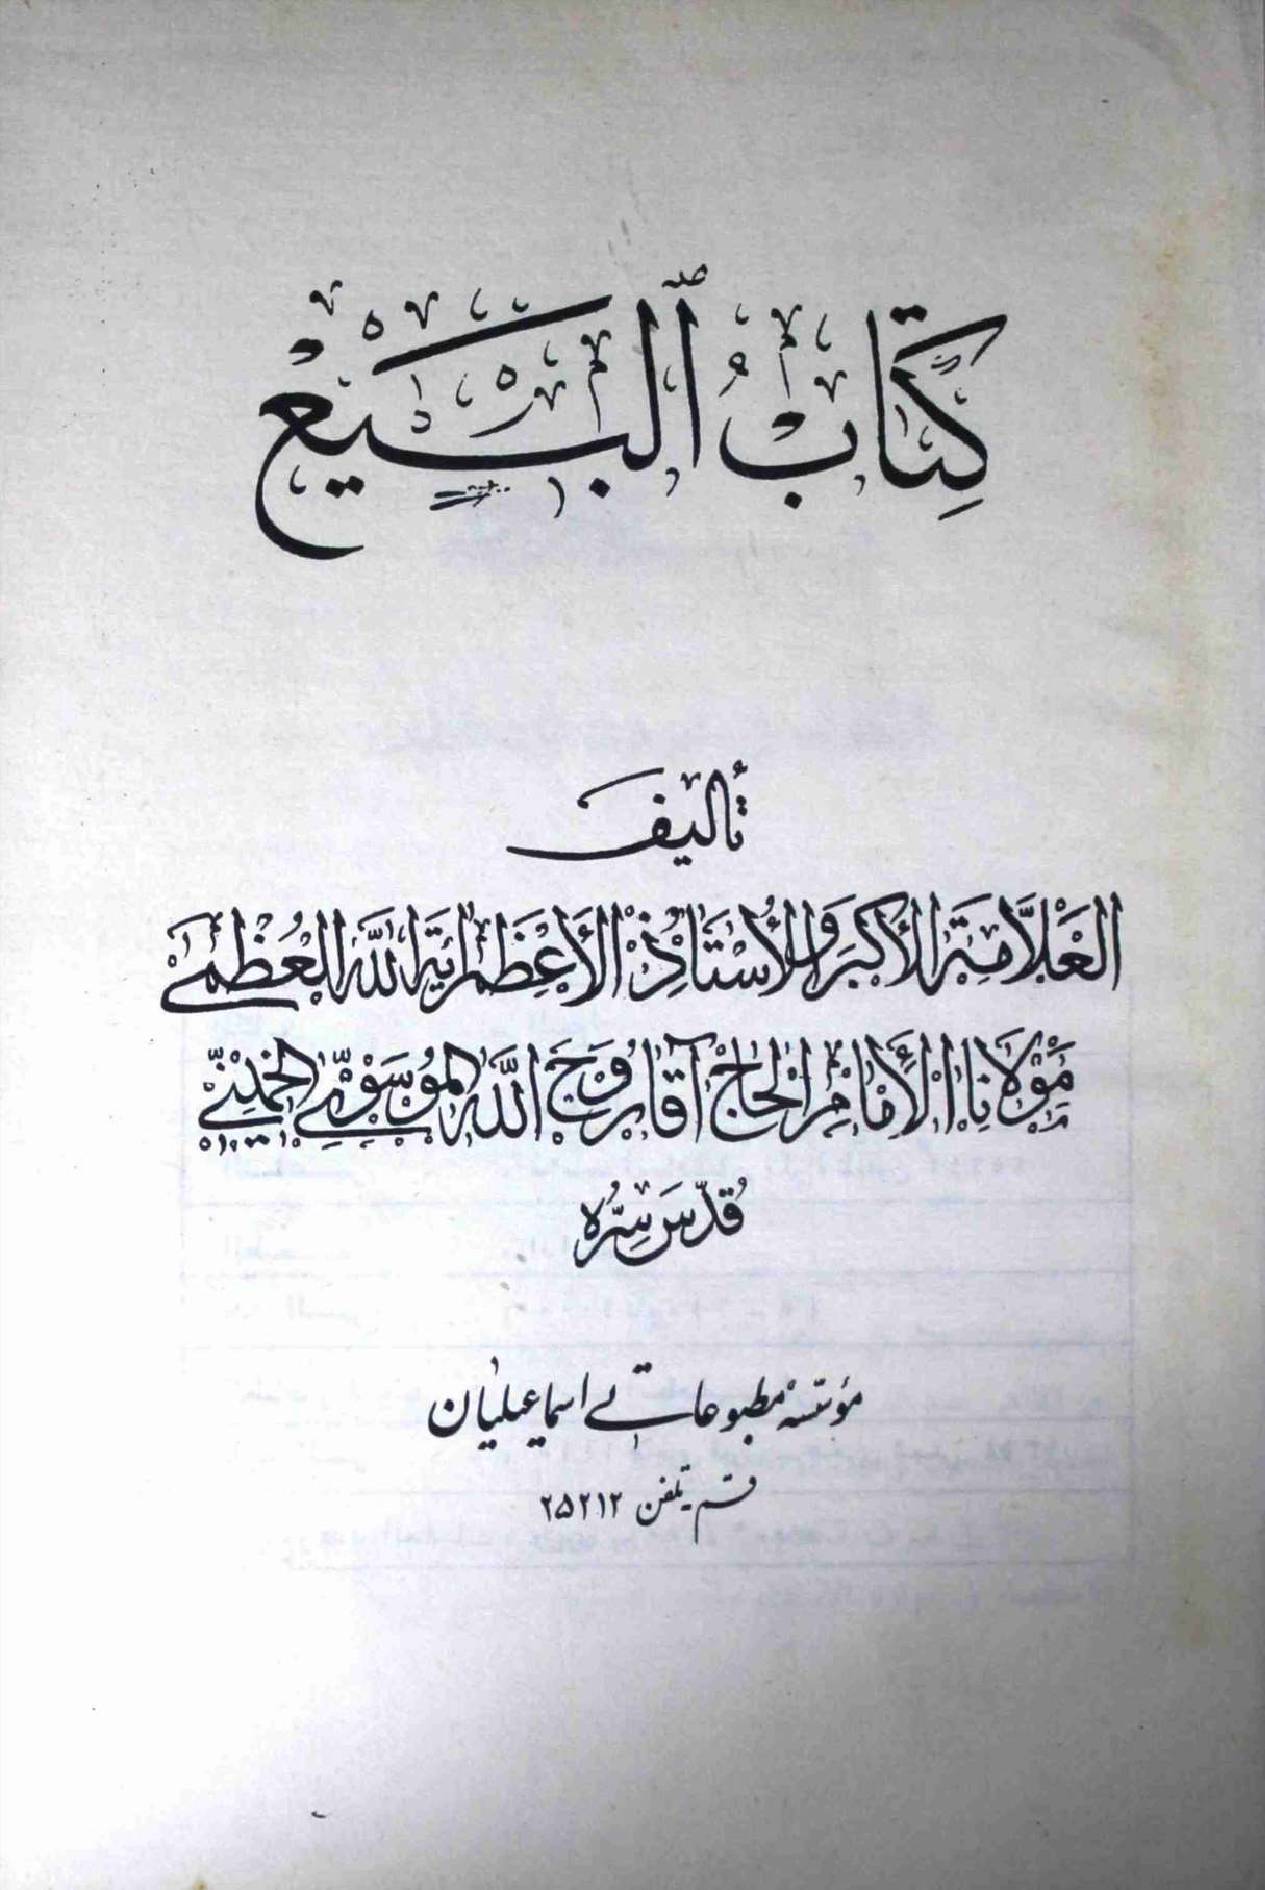 كِتَابُ ٱلْبَيْعِ
تأليف
العَلاَّمَةِ الأَكبَرِ وَالأُسْتَاذِ الأَعْظَمِ آيَةِ اللَّهِ العُظْمىٰ
مَوْلاَنَا الأمَامِ الحَاجْ آقَا رُوحَ اللَّهِ المُوسَوِيّ الخُمَيْنِيّ
قُدِّسَ سِرُّه
مؤسسه مطبوعاتى اسماعيليان
قم ـ تلفن ۲۵۲۱۲